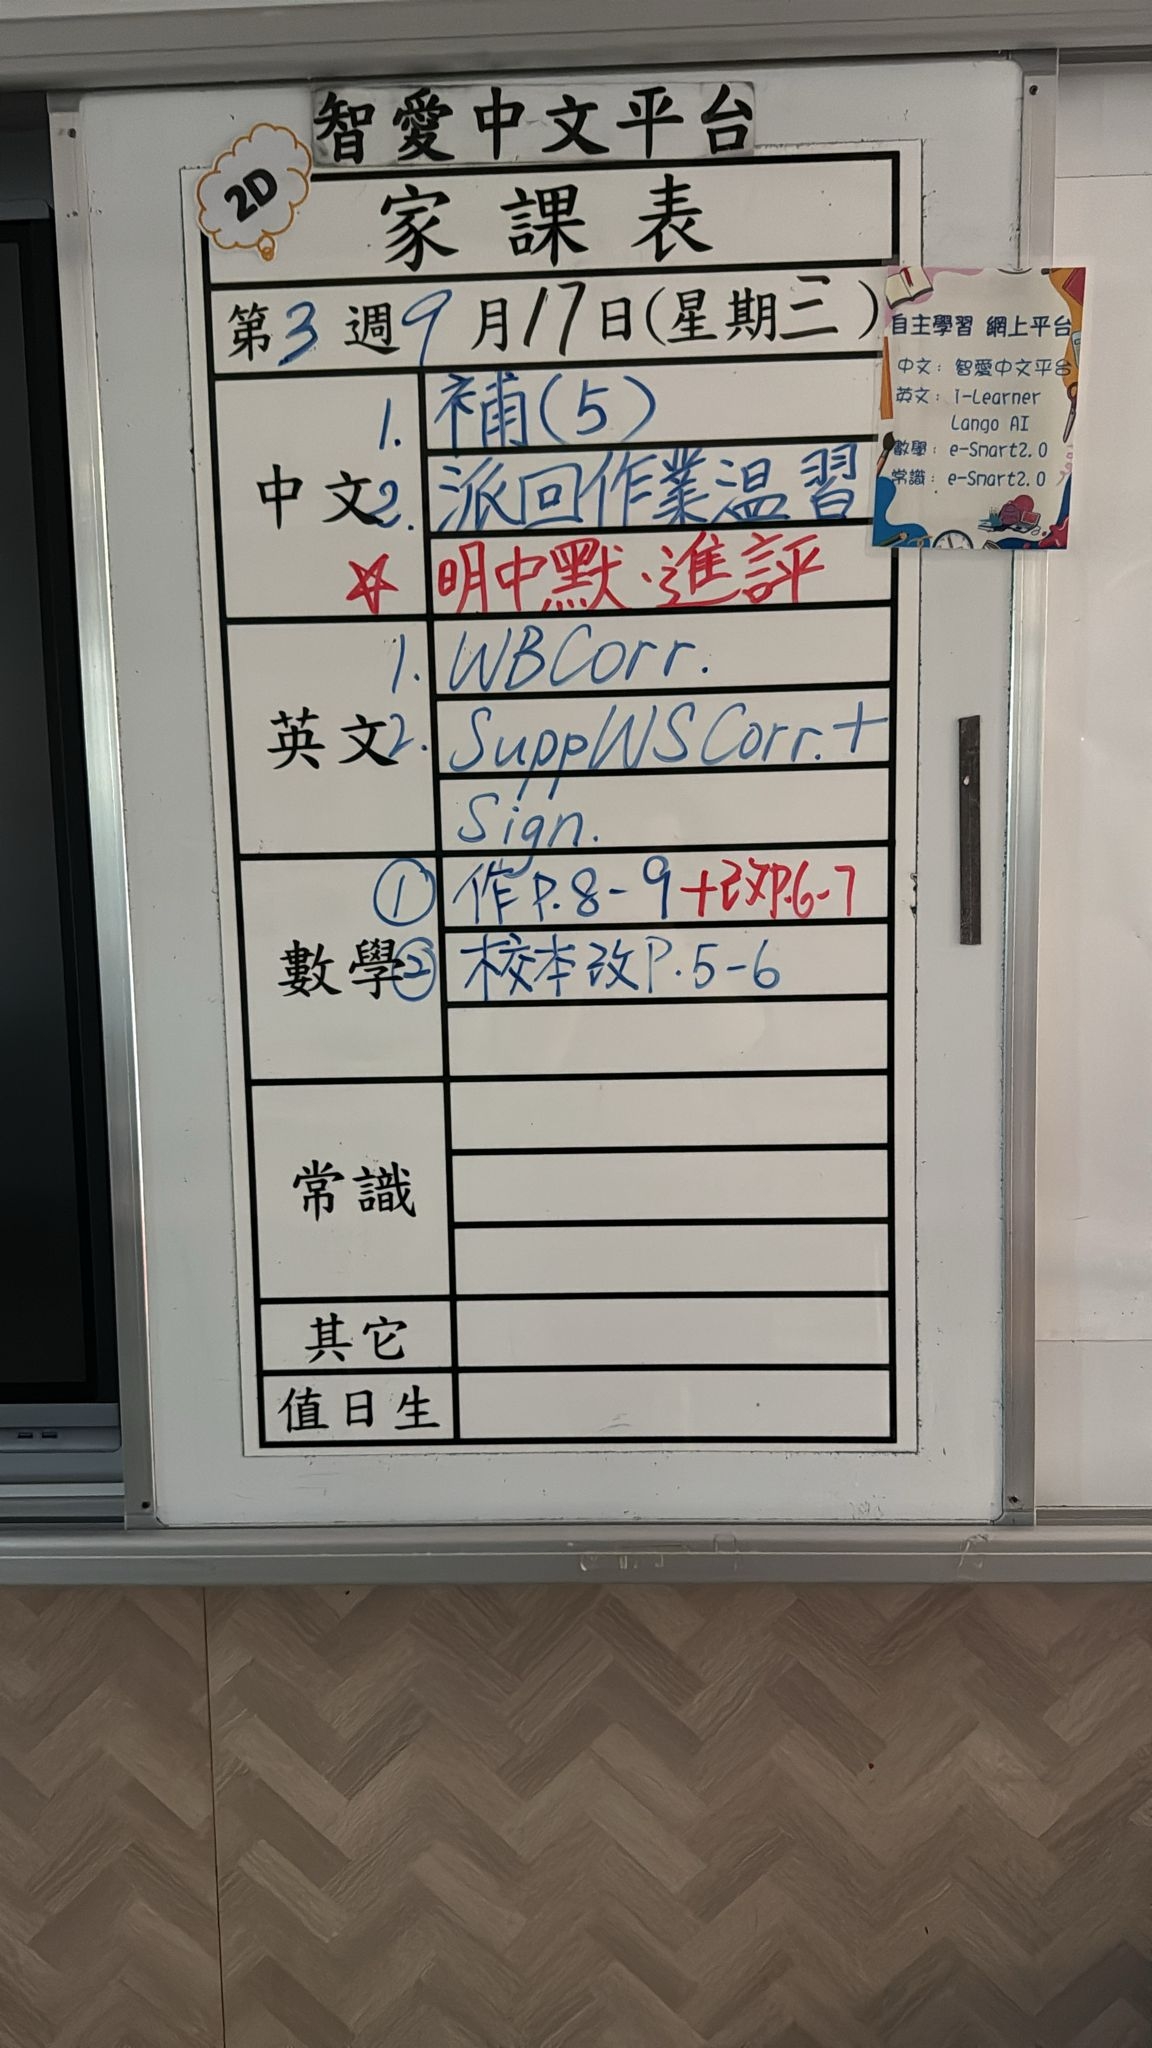 智愛中文平台
2D
家課表
第3週9月17日(星期三)
中文
1. 補(5)
2. 派回作業温習
☆ 明中默、進評
英文
1. WBCorr.
2. SuppWSCorr.+
Sign.
數學
① 作P.8-9+改P.6-7
② 校本改P.5-6
常識
其它
值日生
自主學習 網上平台
中文：智愛中文平台
英文：i-Learner
Lango AI
數學：e-Smart2.0
常識：e-Smart2.0